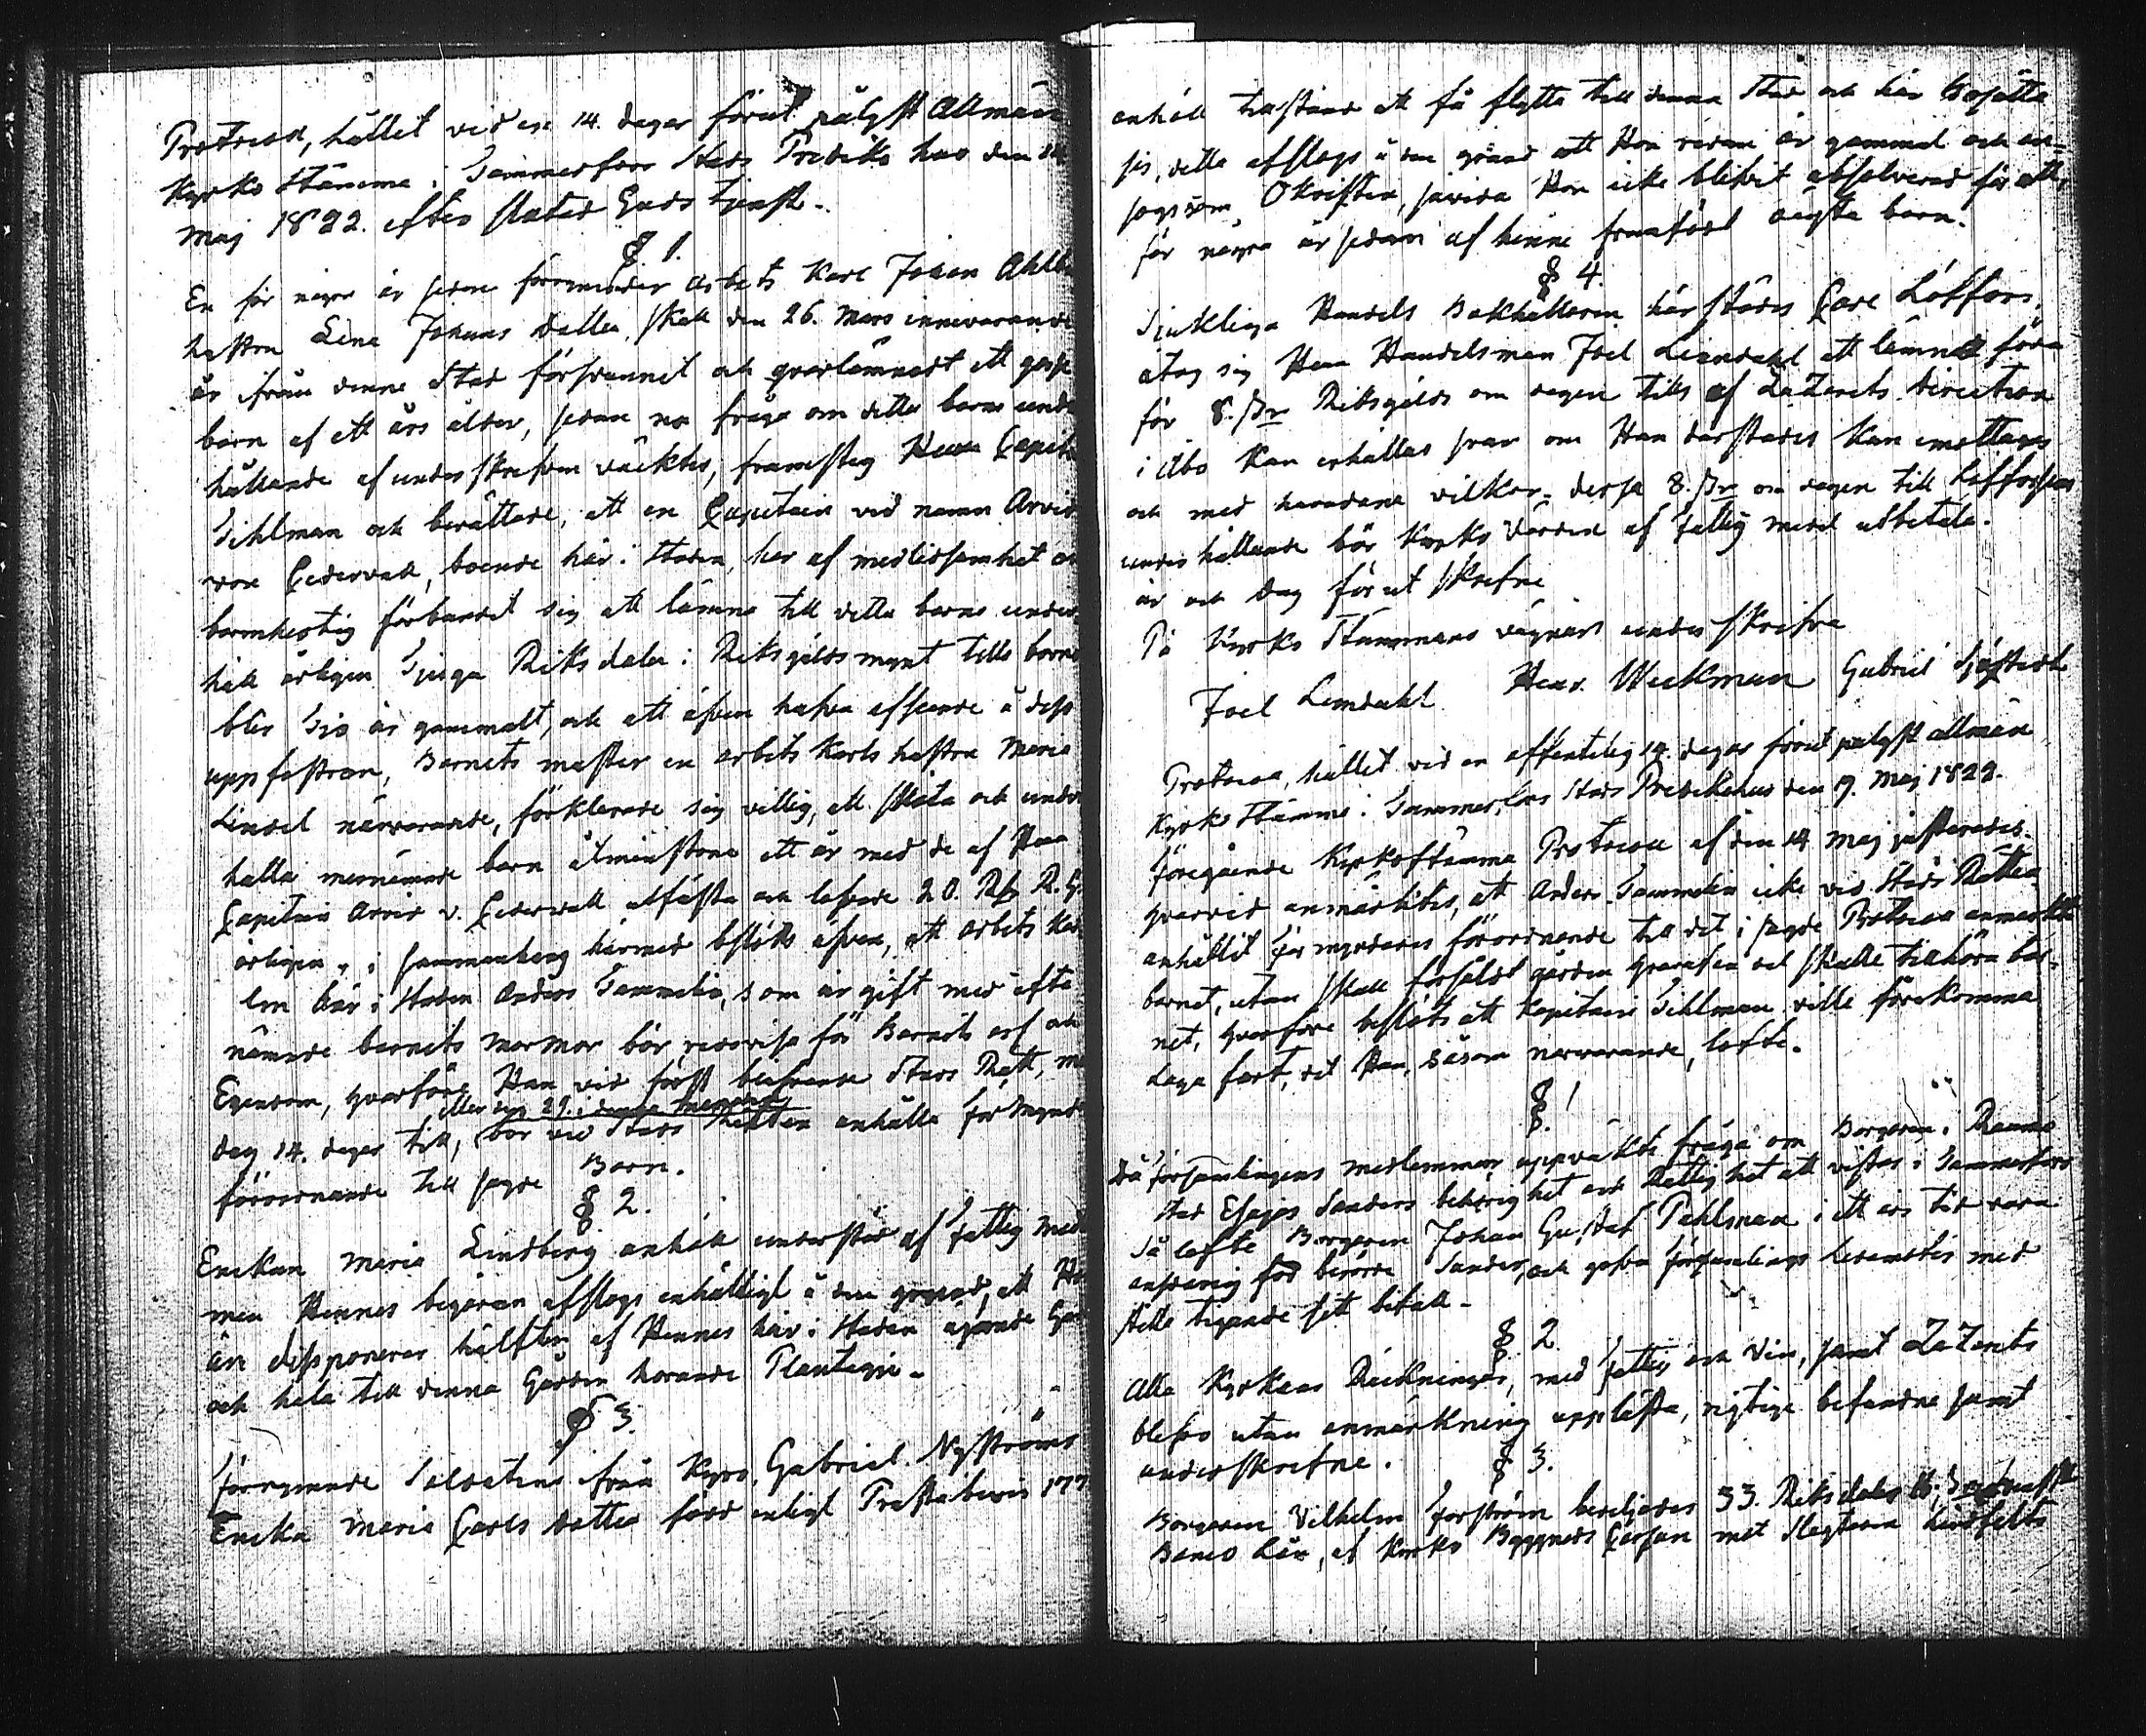 Protocoll, hållet vid en 14. dagar förut pålyst Allmän
Kyrko Stämma i Tammerfors Stads Predikohus den 14
Maj 1822. efter slutad Guds tjenst.
§. 1.
En för några år sedan förrymder Arbets Karl Johan Ahl
hustru Lena Johans dotter, skall den 26. Mars innevarande
år ifrån denne Stad försvunnit och qvarlämnadt ett gosse
barn af ett års ålder, sedan nu fråga om detta barns under
hållande af underskrefven väcktes, framsteg Herr Capit
Tihlman och berättade, att en Capitain vid namn Arvid
von Cedervall, boende här i Staden, har af medlidsamhet och
barmhertig förbundit sig att lämna till detta barns under
håll årligen Tjugu Riksdaler i Riksgälds mynt tills barnet
blir Tio år gammalt, och att äfven hafva afseende å dess
uppfostran, Barnets moster en arbets Karls hustru Maria
Lindel närvarande, förklarade sig villig, att sköta och under
hålla mernämnde barn åtminstone ett år med de af Herr
Capitain Arvid v. Cedervall utfäste och lofvade 20. Rd R.G.
årligen, i sammanhang härmed beslöts äfven, att arbets kar
len här i Staden Anders Tammelin, som är gift med ofta
nämnde barnets mormor bör redovisa för Barnets arf och
Egendom, hvarföre Han vid först blifvande Stads Rätt,
eller den 29. i denne månad
dag 14. dagar till, bör vid Stads Rätten anhålla förmynd
förordnande till sagde Barn.
§ 2.
Enckan Maria Lindberg anhöll understöd af fattig med
men Hennes begäran afslogs enhälligt å den grund, att Ho
än disponerar hälften af Hennes här i Staden ägande Gård
och hela till denna Gården hörande Plantagie.
§ 3.
förrymde Soldatens från Kyro, Gabriel Nyströms
Encka Maria Carls dotter född enligt Prästabevis 177
anhöll tillstånd att få flytta till denna Stad och här bosätta
sig, detta afslogs å den grund att Hon redan är gammal och an-
sogs som Okristen, såvida Hon icke blifvit absolverad för ett,
för några år sedan af henne framfödt oägta barn.
§ 4.
Sjukliga Handels Bokhållaren härstädes Carl Löffors,
åtog sig Herr Handelsman Joel Lindahl att lämna föda
för 8. Riksgälds om dagen tills af Lazarets Direction
i Åbo kan erhållas svar om Han därstädes kan emottagas
och med hvardana vilkor. dessa 8. om dagen till Loffforssens
underhållande bör Kyrko Värden af fattig medel utbetala.
år och dag förut skrefne
På Kyrko Stämmans vägnar underskrifva
Joel Lindahl Henr. Wickman Gabriel Sjöstedt
Protocoll, hållet vid en offentelig 14. dagar förut pålyst allmän
Kyrko Stämma i Tammerfors Stads Predikohus den 19. Maj 1822.
föregående Kyrkostämma Protocoll af den 14 Maj justerades.
hvarvid anmärktes, att Anders Tammelin icke vid Stads Rätten
anhållit förmyndares förordnande till det i sagde Protocoll anmärkte
barnet, utan skall försåldt gården hvarifrån del skulle tillhöra bar-
net, hvarföre beslöts att Kapitain Tihlman ville förekomma
laga fart, det Han, såsom närvarande, lofte.
§ 1
Då församlingens medlemmar uppväkte fråga om Borgaren i Raumo
stad Esajas Sanders behörighet och Rättighet att vistas i Tammerfors
Så lofte Borgaren Johan Gustaf Pahlman i ett års tid vara
ansvarig för berörde Sander, och gofvo församlings ledamöter med
stilla tigande sitt bifall.
§ 2.
Alla Kyrkans Räkningar, med fattig och Vin, samt Lazarets
blefvo utan anmärkning upplästa, rigtige befundne samt
underskrefne.
§ 3.
Borgaren Wilhelm Forström beviljades 33. Riksdaler 16.
Banco Lån, af Kyrko Byggnads Cassan mot Slagtaren Lindfelts